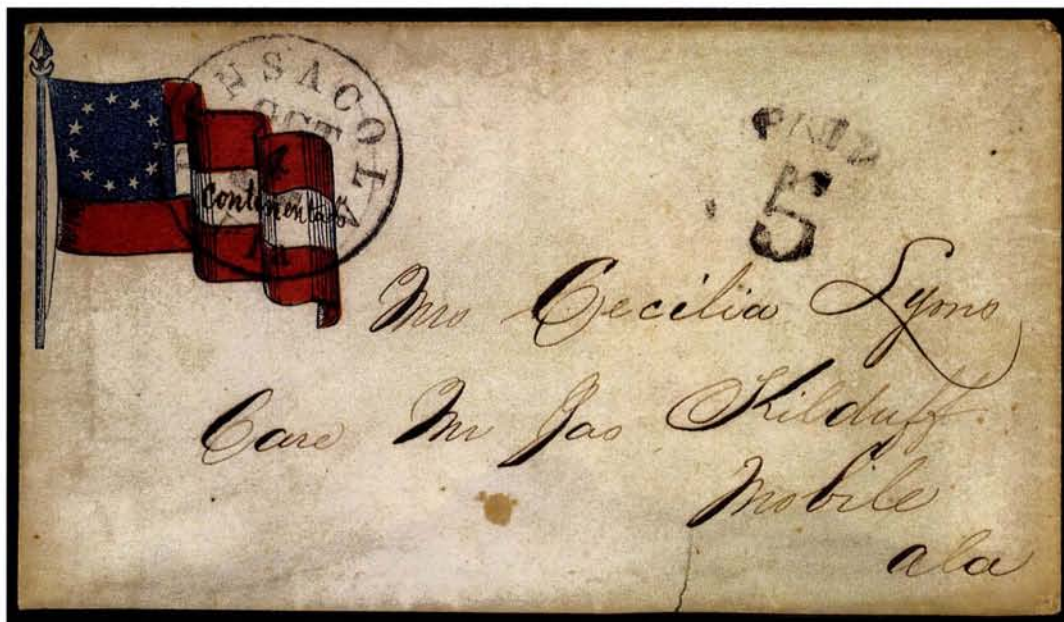 NSACOLA
OCT
4
Continentals
PAID
5
Mrs Cecilia Lyons
Care Mr Jas Kilduff
Mobile
ala